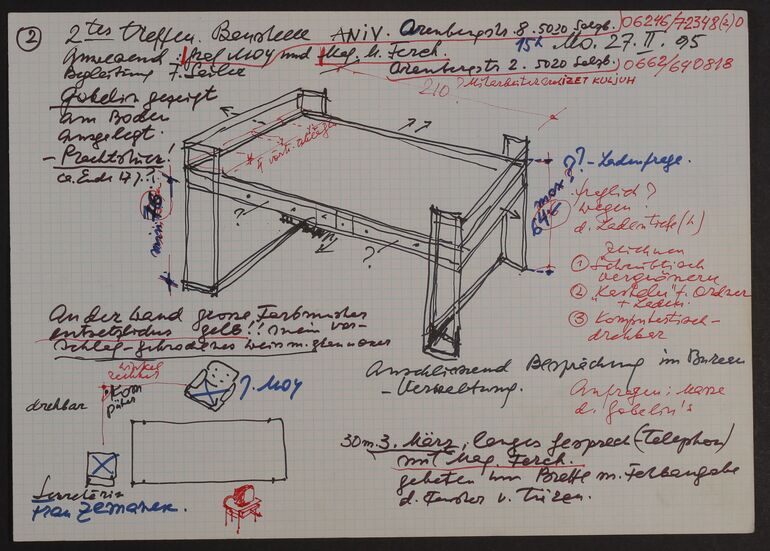 ② 2tes Treffen. Baustelle ANIV. Arenbergstr 8. 5020 Salzb.) 06246/72348(2)0
Anwesend: Prof MOY und Mag. H. Ferch. 15h Mo. 27. II. 95
Begleitung F. Seiler Arenbergstr 2. 5020 Salzb.) 0662/640818
210? Mitarbeiter IZET KULJUH
Gobelin gezeigt
am Boden
ausgelegt.
- Prachtstück!
ca. Ende 17 J.?
4 vorschläge
min 70
max 64
? - Ladenfrage.
fraglich?
wegen
d. Ladentiefe (h)
zeichnen
① Schreibtisch
vergrössern
② "Kastola" f. Ordner
+ Laden.
③ Komputertisch-
drehbar
?
?
?
An der Wand grosse Farbmuster
entsetzliches gelb!! mein vor-
schlag - gebrochenes weiss m.
Anschliessend Besprechung im Bureau
- Verwaltung.
Anfragen: Masse
d. Gobelin's
winkel
drehbar
Kom
puter
P. MOY
Sekretärin
Frau ZEMANEK.
30m. 3. März, langes Gespräch (Telephon)
mit Mag. Ferch.
gebeten um Breite m. Farbangabe
d. Fenster u. Türen.